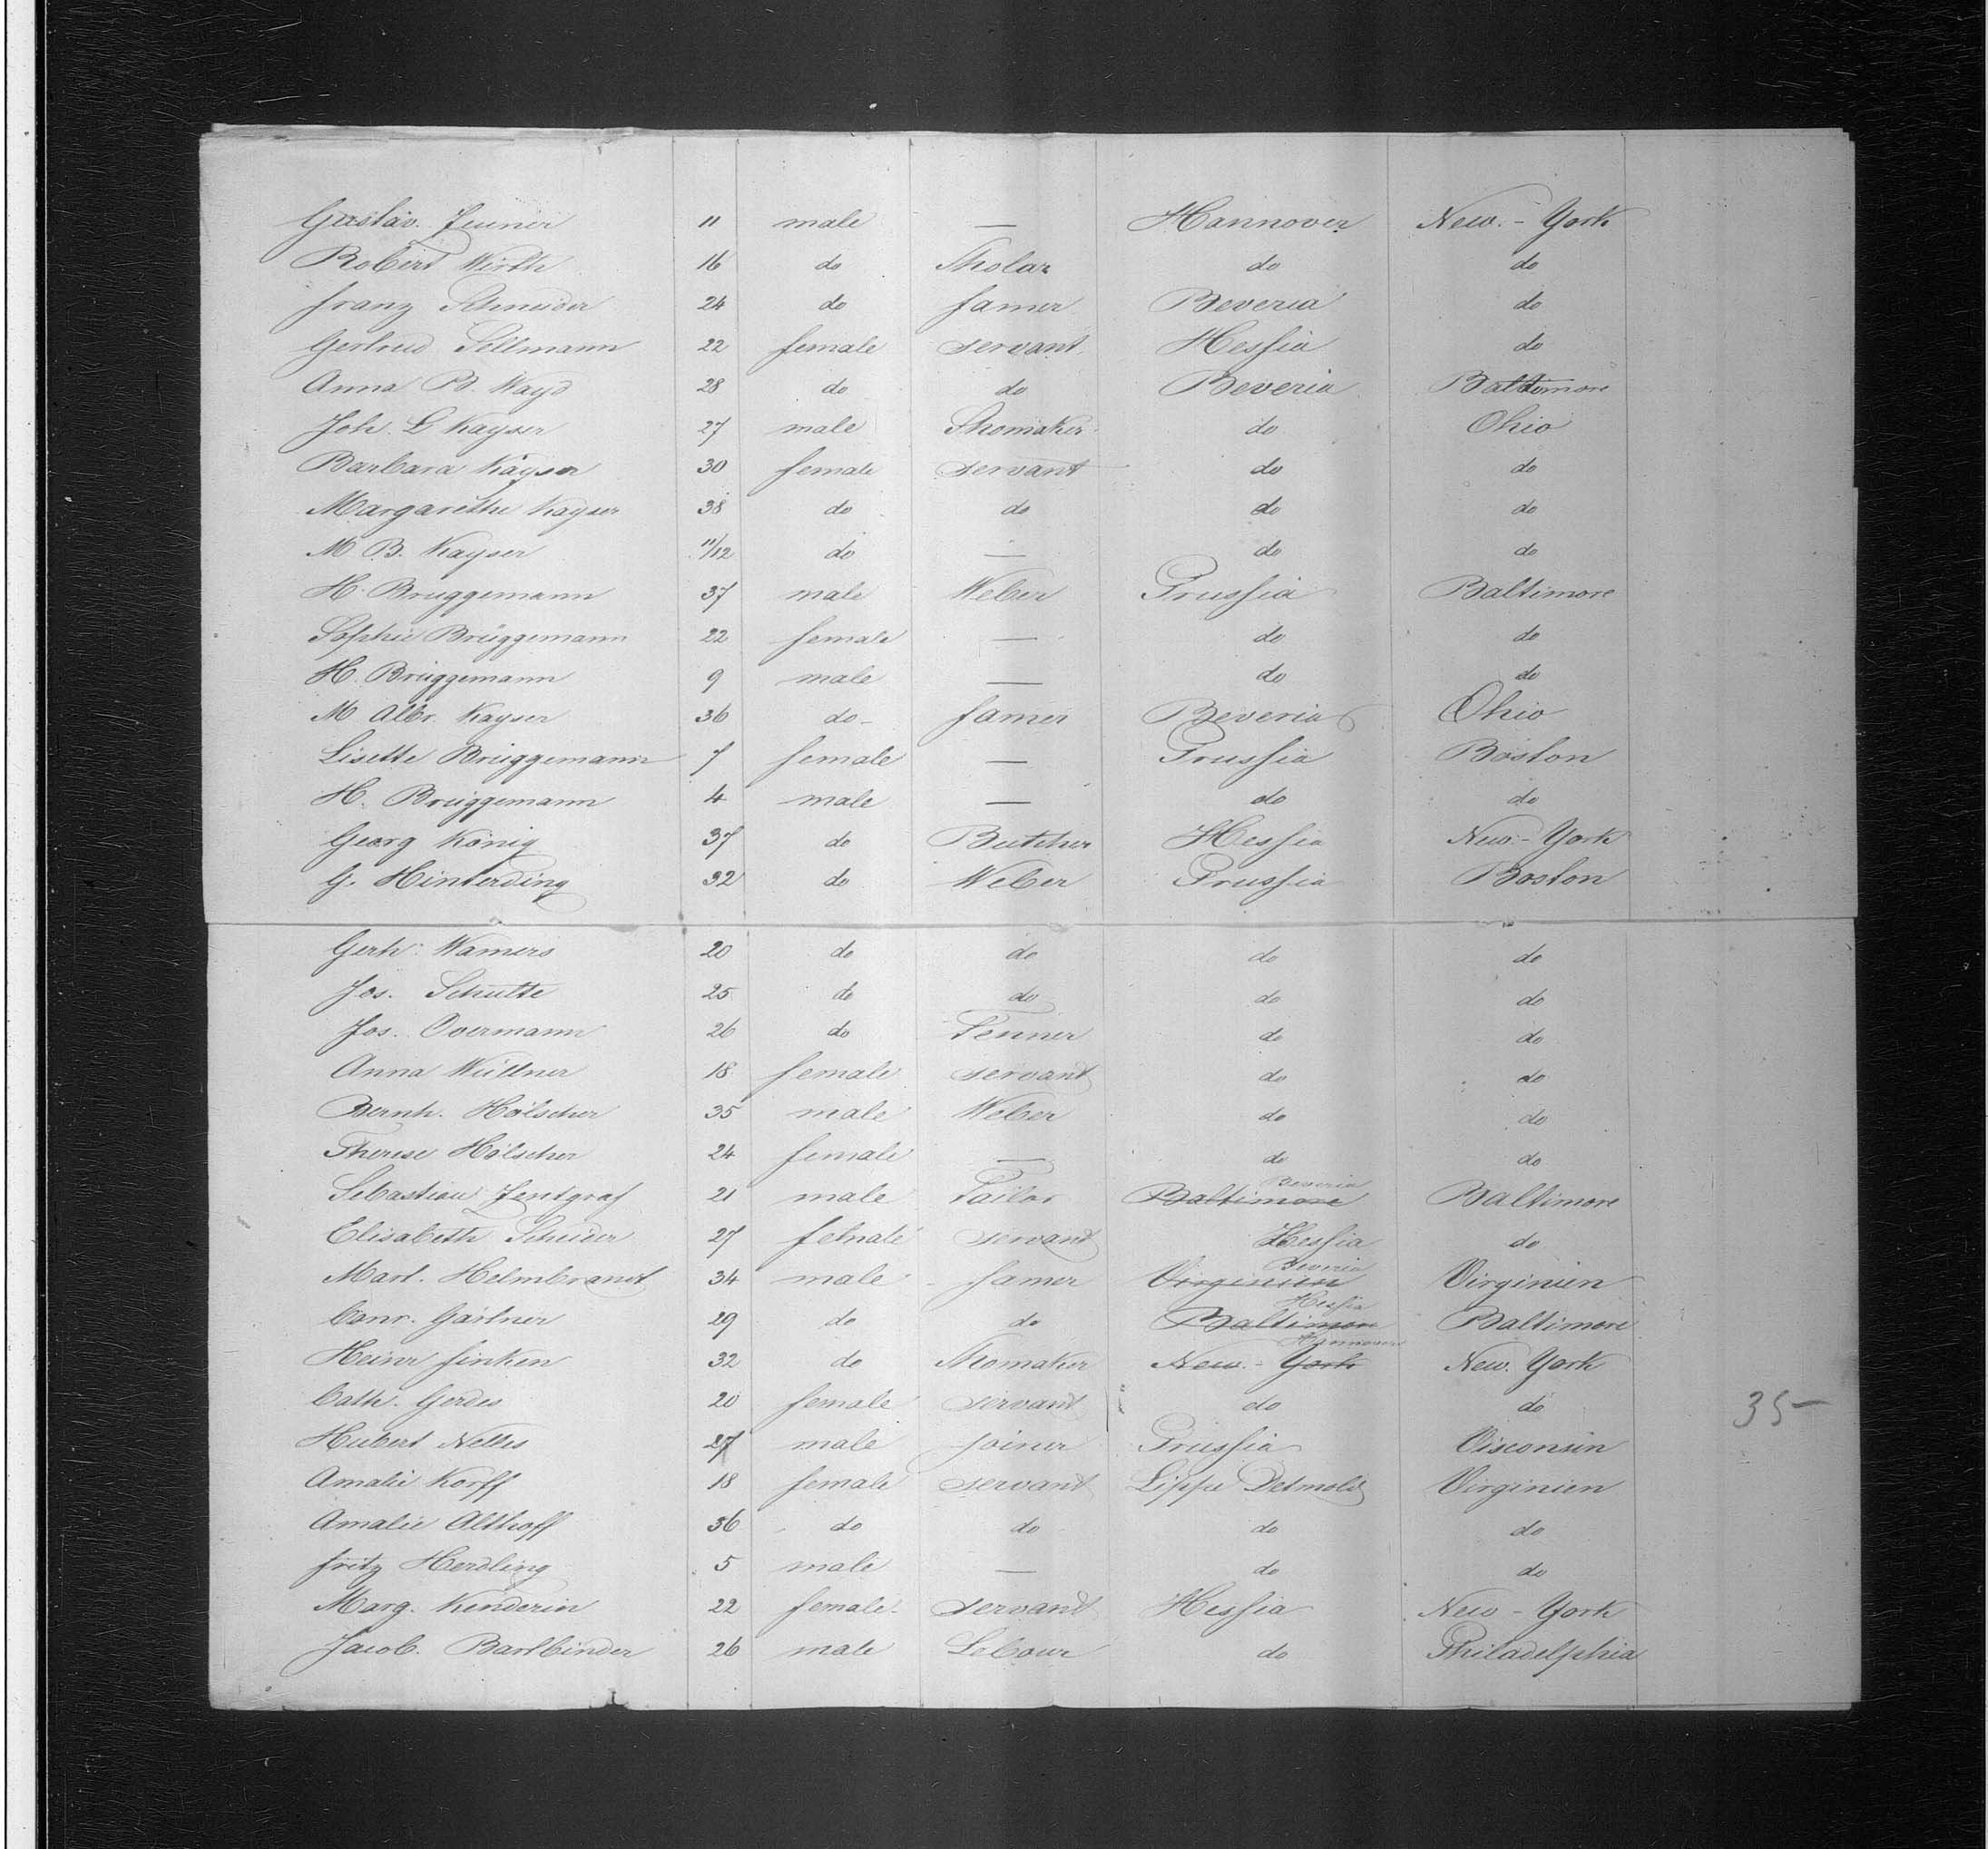 Gustav. Jenner 11 male — Hannover New.-York
Robert Wirth 16 do Sholar do do
Franz Schneider 24 do famer Beveria do
Gertrud Sellmann 22 female servant Hessia do
Anna B. Wayd 28 do do Beveria Baltimore
Joh. L Kayser 27 male Shomaker do Ohio
Barbara Kayser 30 female servant do do
Margarethe Kayser 38 do do do do
M B. Kayser 11/12 do — do do
H. Brüggemann 37 male Weber Prussia Baltimore
Sophie Brüggemann 22 female — do do
H. Brüggemann 9 male — do do
M Albr. Kayser 36 do famer Beveria Ohio
Lisette Brüggemann 7 female — Prussia Boston
H. Brüggemann 4 male — do do
Georg König 37 do Butcher Hessia New-York
G. Hinterding 32 do Weber Prussia Boston
Gerh. Wamers 20 do do do do
Jos. Schulte 25 do do do do
Jos. Overmann 26 do Tenner do do
Anna Wüllner 18 female servant do do
Bernh. Hölscher 35 male Weber do do
Therese Hölscher 24 female — do do
Sebastian Jentgraf 21 male Tailor Baltimore Beveria Baltimore
Elisabeth 27 female servant Hessia do
Mart. Helmbrandt 34 male famer Virginien Beveria Virginien
Conr. Gärtner 29 do do Baltimore Hessia Baltimore
Heinr Finken 32 do Shomaker New-York Hannover New. York
Cath. Gerdes 20 female servant do do 35-
Hubert Nelles 27 male joiner Prussia Visconsin
Amalie Korff 18 female servant Lippe Detmold Virginien
Amalie Althoff 36 do do do do
Fritz Herdling 5 male — do do
Marg. Kenderin 22 female servant Hessia New-York
Jacob. Bartbinder 26 male Lebour do Philadelphia